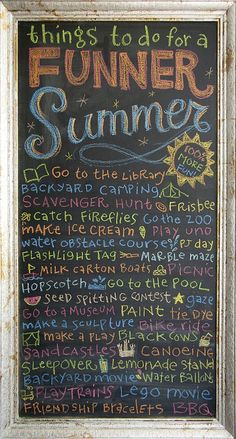 things to do for a
FUNNER
Summer
100% MORE FUN!
Go to the Library
BACKYARD CAMPING
SCAVENGER HUNT Frisbee
CATCH FIREFLIES Go the ZOO
MAKE ICE CREAM PLAY UNO
WATER OBSTACLE COURSE PJ DAY
FLASHLIGHT TAG MARBLE MAZE
MILK CARTON BOATS PICNIC
HOPSCOTCH Go to the POOL
SEED SPITTING CONTEST gaze
Go to a MUSEUM PAINT TIE DYE
MAKE a SCULPTURE Bike ride
MAKE a PLAY BLACK COWS
SANDCASTLES CANOEING
SLEEPOVER LEMONADE STAND
BACKYARD MOVIE WATER BALLOON
PLAY TRAINS LEGO MOVIE
FRIENDSHIP BRACELETS BBQ